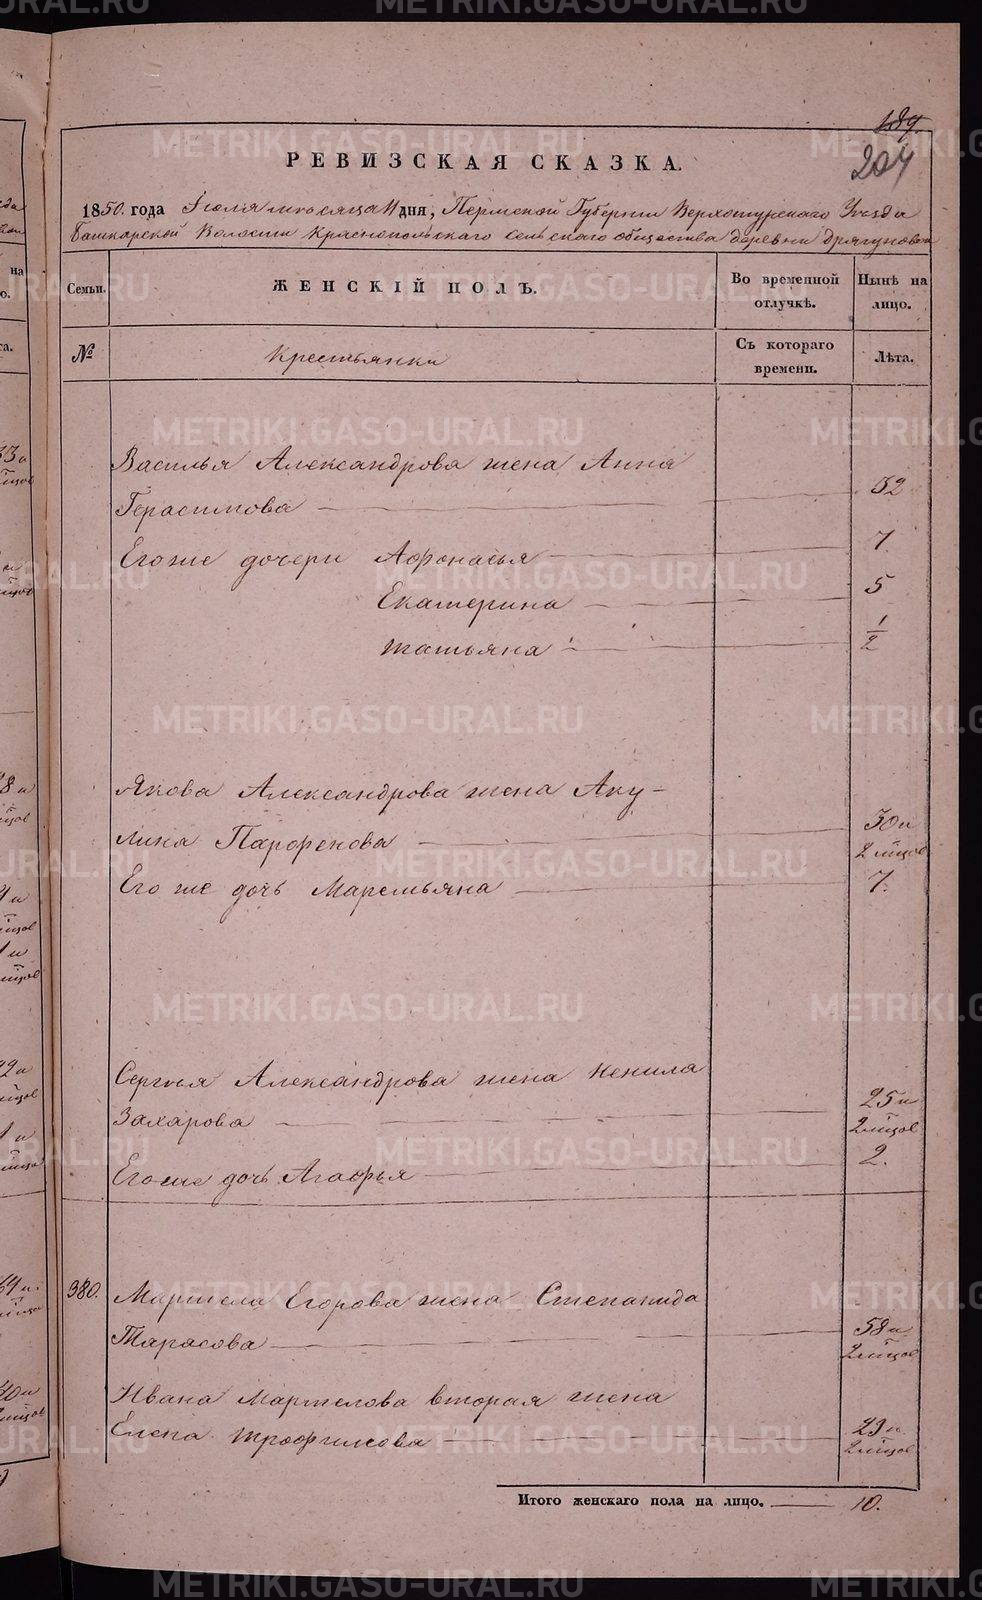 METRIKI.GASO-URAL.RU
189.
204
РЕВИЗСКАЯ СКАЗКА.
1850. года Іюля месяца 11 дня, Пермской Губерніи Верхотурскаго Уезда
Башкарской Волости Краснопольскаго сельскаго общества деревни Дрягуновой
Семьи. ЖЕНСКІЙ ПОЛЪ. Во временной отлучкѣ. Нынѣ на лицо.
№ Крестьянки Съ котораго времени. Лѣта.
Василья Александрова жена Анна
Герасимова — 32
Егоже дочери Афонасья — 7.
Екатерина — 5
Татьяна — 1/2
Якова Александрова жена Аку-
лина Парфенова — 30 и 2 м̃цов
Его же дочь Маремьяна — 7.
Сергея Александрова жена Ненила
Захарова — 25 и 2 м̃цов
Егоже дочь Агафья — 2.
380. Мартела Егорова жена Степанида
Тарасова — 58 и 2 м̃цов
Ивана Мартелова вторая жена
Елена Трофимова — 23 и 2 м̃цов
Итого женскаго пола на лицо. — 10.